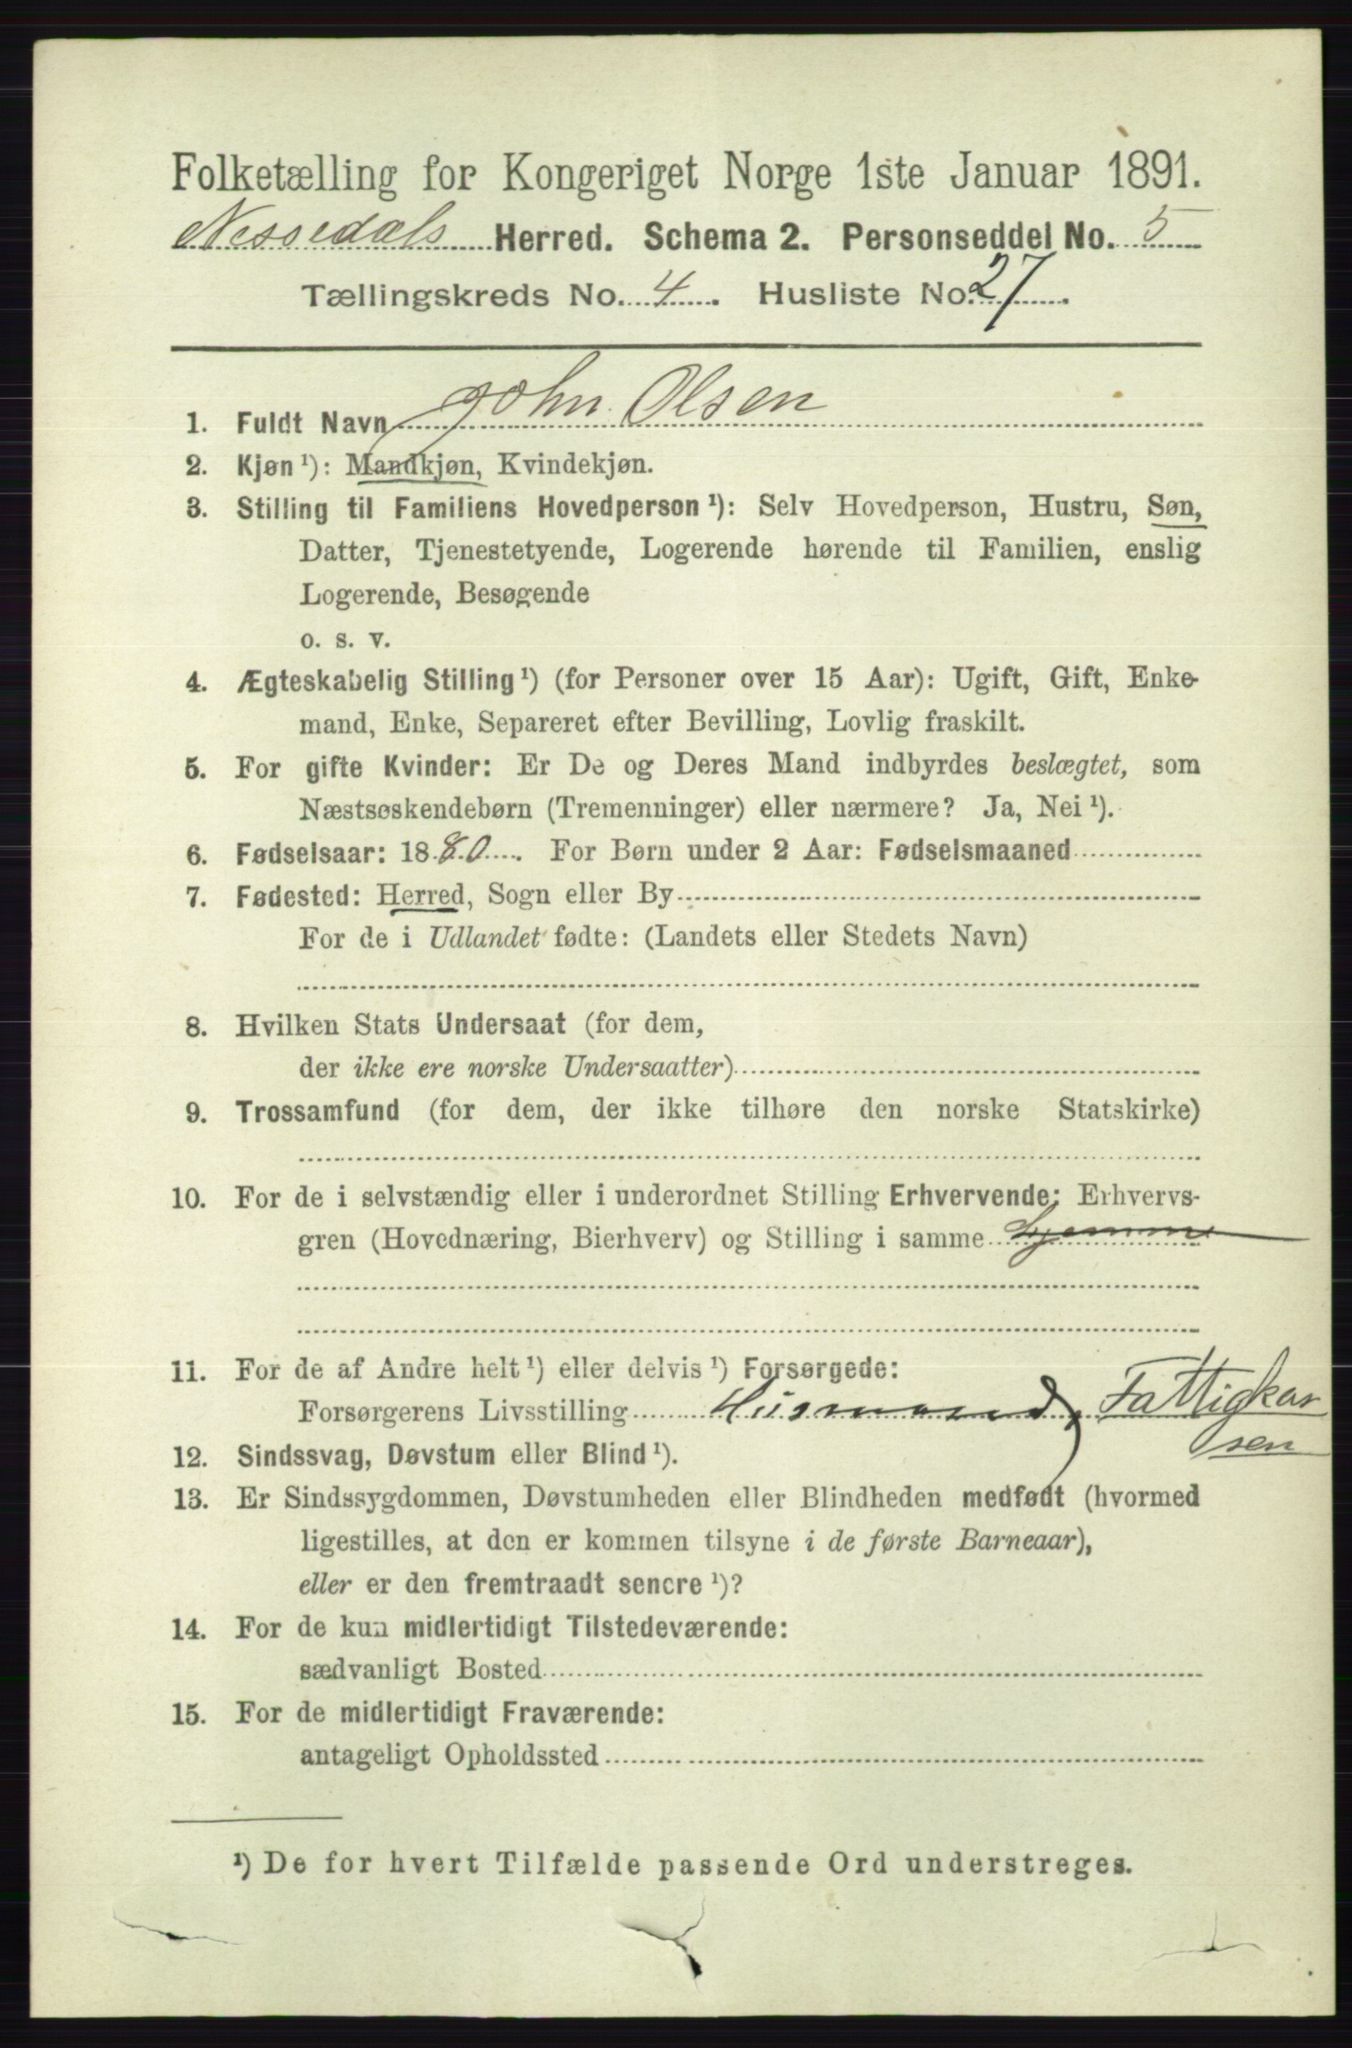 Folketælling for Kongeriget Norge 1ste Januar 1891.
Nissedals Herred. Schema 2. Personseddel No. 5
Tællingskreds No. 4. Husliste No. 27.
1. Fuldt Navn John Olsen
2. Kjøn ¹): Mandkjøn, Kvindekjøn.
3. Stilling til Familiens Hovedperson ¹): Selv Hovedperson, Hustru, Søn,
Datter, Tjenestetyende, Logerende hørende til Familien, enslig
Logerende, Besøgende
o. s. v.
4. Ægteskabelig Stilling ¹) (for Personer over 15 Aar): Ugift, Gift, Enke-
mand, Enke, Separeret efter Bevilling, Lovlig fraskilt.
5. For gifte Kvinder: Er De og Deres Mand indbyrdes beslægtet, som
Næstsøskendebørn (Tremenninger) eller nærmere? Ja, Nei ¹).
6. Fødselsaar: 1880. For Børn under 2 Aar: Fødselsmaaned
7. Fødested: Herred, Sogn eller By
For de i Udlandet fødte: (Landets eller Stedets Navn)
8. Hvilken Stats Undersaat (for dem,
der ikke ere norske Undersaatter)
9. Trossamfund (for dem, der ikke tilhøre den norske Statskirke)
10. For de i selvstændig eller i underordnet Stilling Erhvervende: Erhvervs-
gren (Hovednæring, Bierhverv) og Stilling i samme hjemme
11. For de af Andre helt ¹) eller delvis ¹) Forsørgede:
Forsørgerens Livsstilling Husmand, Fattigkas
sen
12. Sindssvag, Døvstum eller Blind ¹).
13. Er Sindssygdommen, Døvstumheden eller Blindheden medfødt (hvormed
ligestilles, at den er kommen tilsyne i de første Barneaar),
eller er den fremtraadt senere ¹)?
14. For de kun midlertidigt Tilstedeværende:
sædvanligt Bosted
15. For de midlertidigt Fraværende:
antageligt Opholdssted
¹) De for hvert Tilfælde passende Ord understreges.